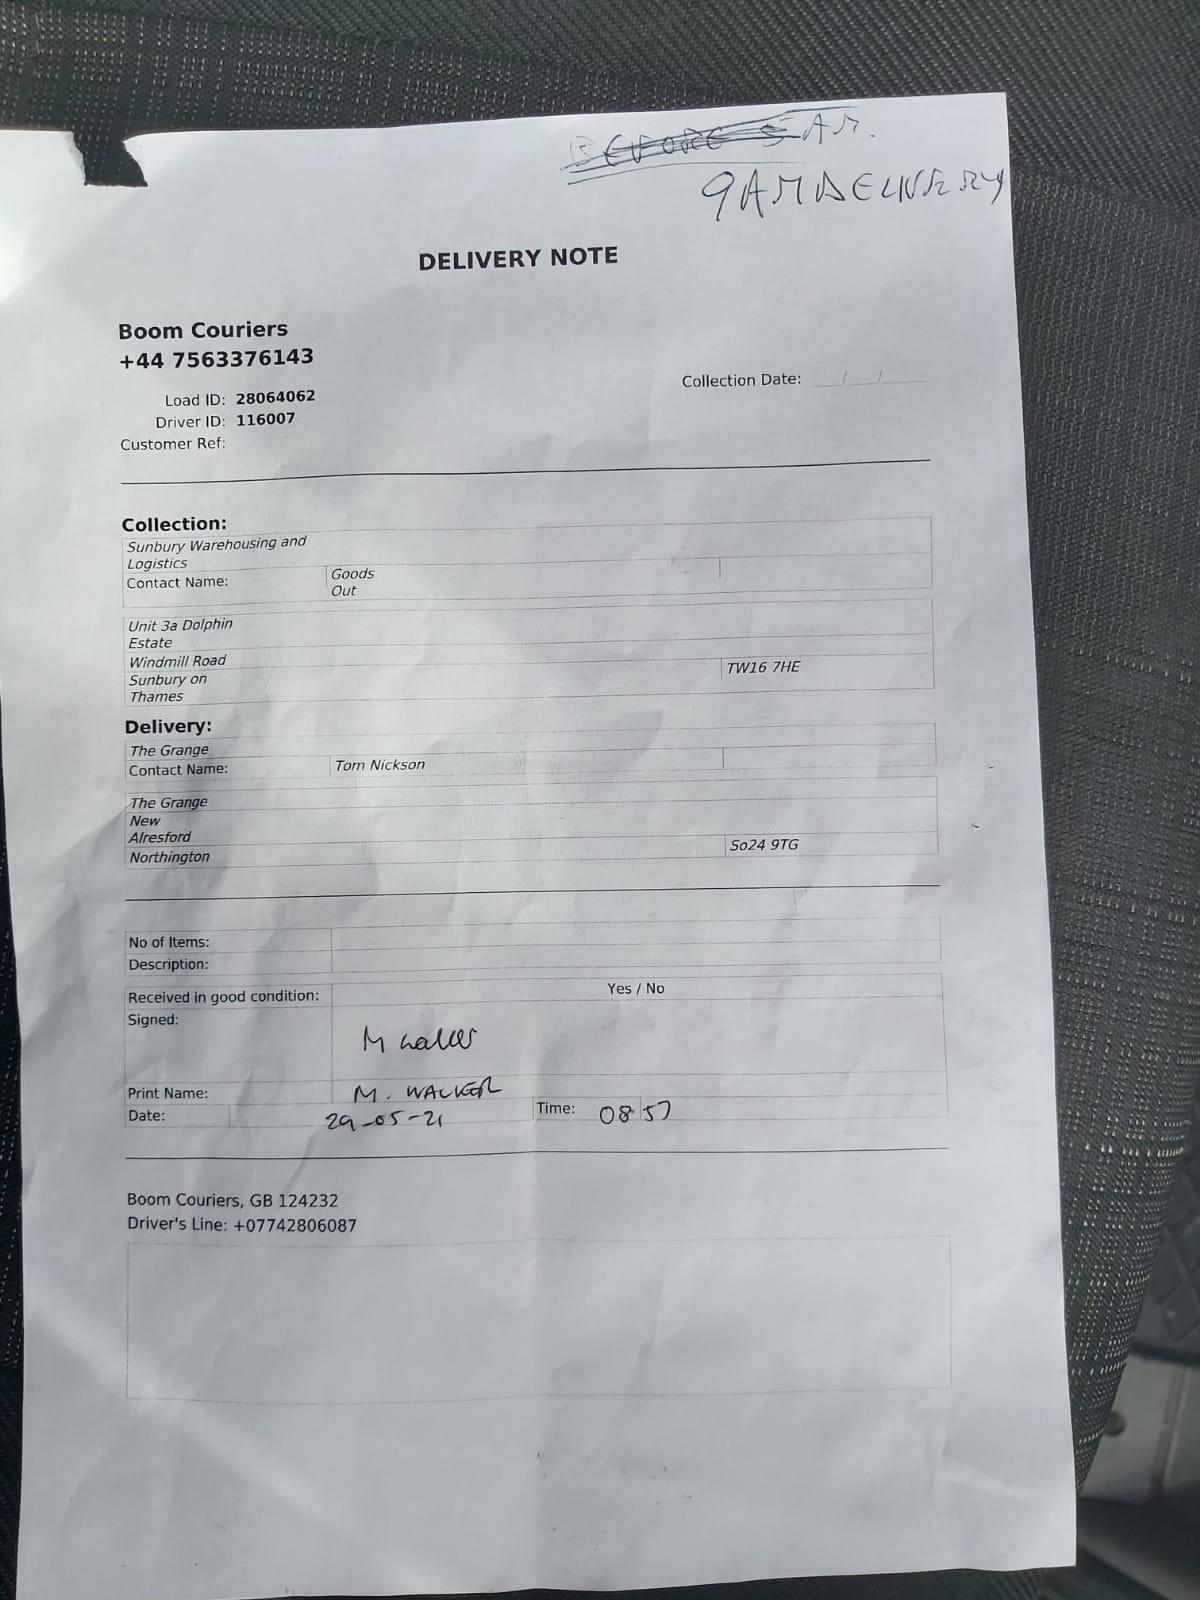 BEFORE 5 AM.
9AM DELIVERY
DELIVERY NOTE
Boom Couriers
+44 7563376143
Collection Date: __/__/____
Load ID: 28064062
Driver ID: 116007
Customer Ref:
Collection:
Sunbury Warehousing and
Logistics
Contact Name: Goods
Out
Unit 3a Dolphin
Estate
Windmill Road
Sunbury on TW16 7HE
Thames
Delivery:
The Grange
Contact Name: Tom Nickson
The Grange
New
Alresford
Northington So24 9TG
No of Items:
Description:
Received in good condition: Yes / No
Signed: M Walker
Print Name: M. WALKER
Date: 29-05-21 Time: 08 57
Boom Couriers, GB 124232
Driver's Line: +07742806087